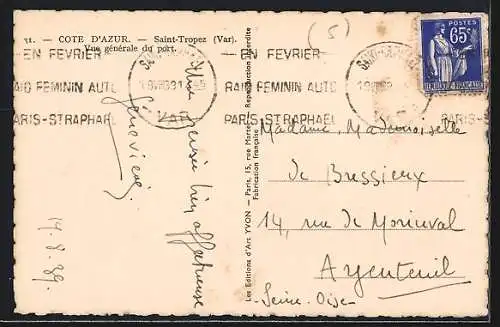 31. — COTE D'AZUR. — Saint-Tropez (Var).
Vue générale du port.
EN FEVRIER
RAID FEMININ AUTO
PARIS-STRAPHAEL
VAR
EN FEVRIER
RAID FEMININ AUTO
PARIS-STRAPHAEL
PARIS-S
POSTES
65c
Une pensée bien affectueuse
Geneviève.
19.8.39.
Les Editions d'Art YVON — Paris, 15, rue Martel — Reproduction interdite
Fabrication française
(5)
Madame, Mademoiselle
de Bressieux
14, rue de Morinval
Argenteuil
Seine-Oise